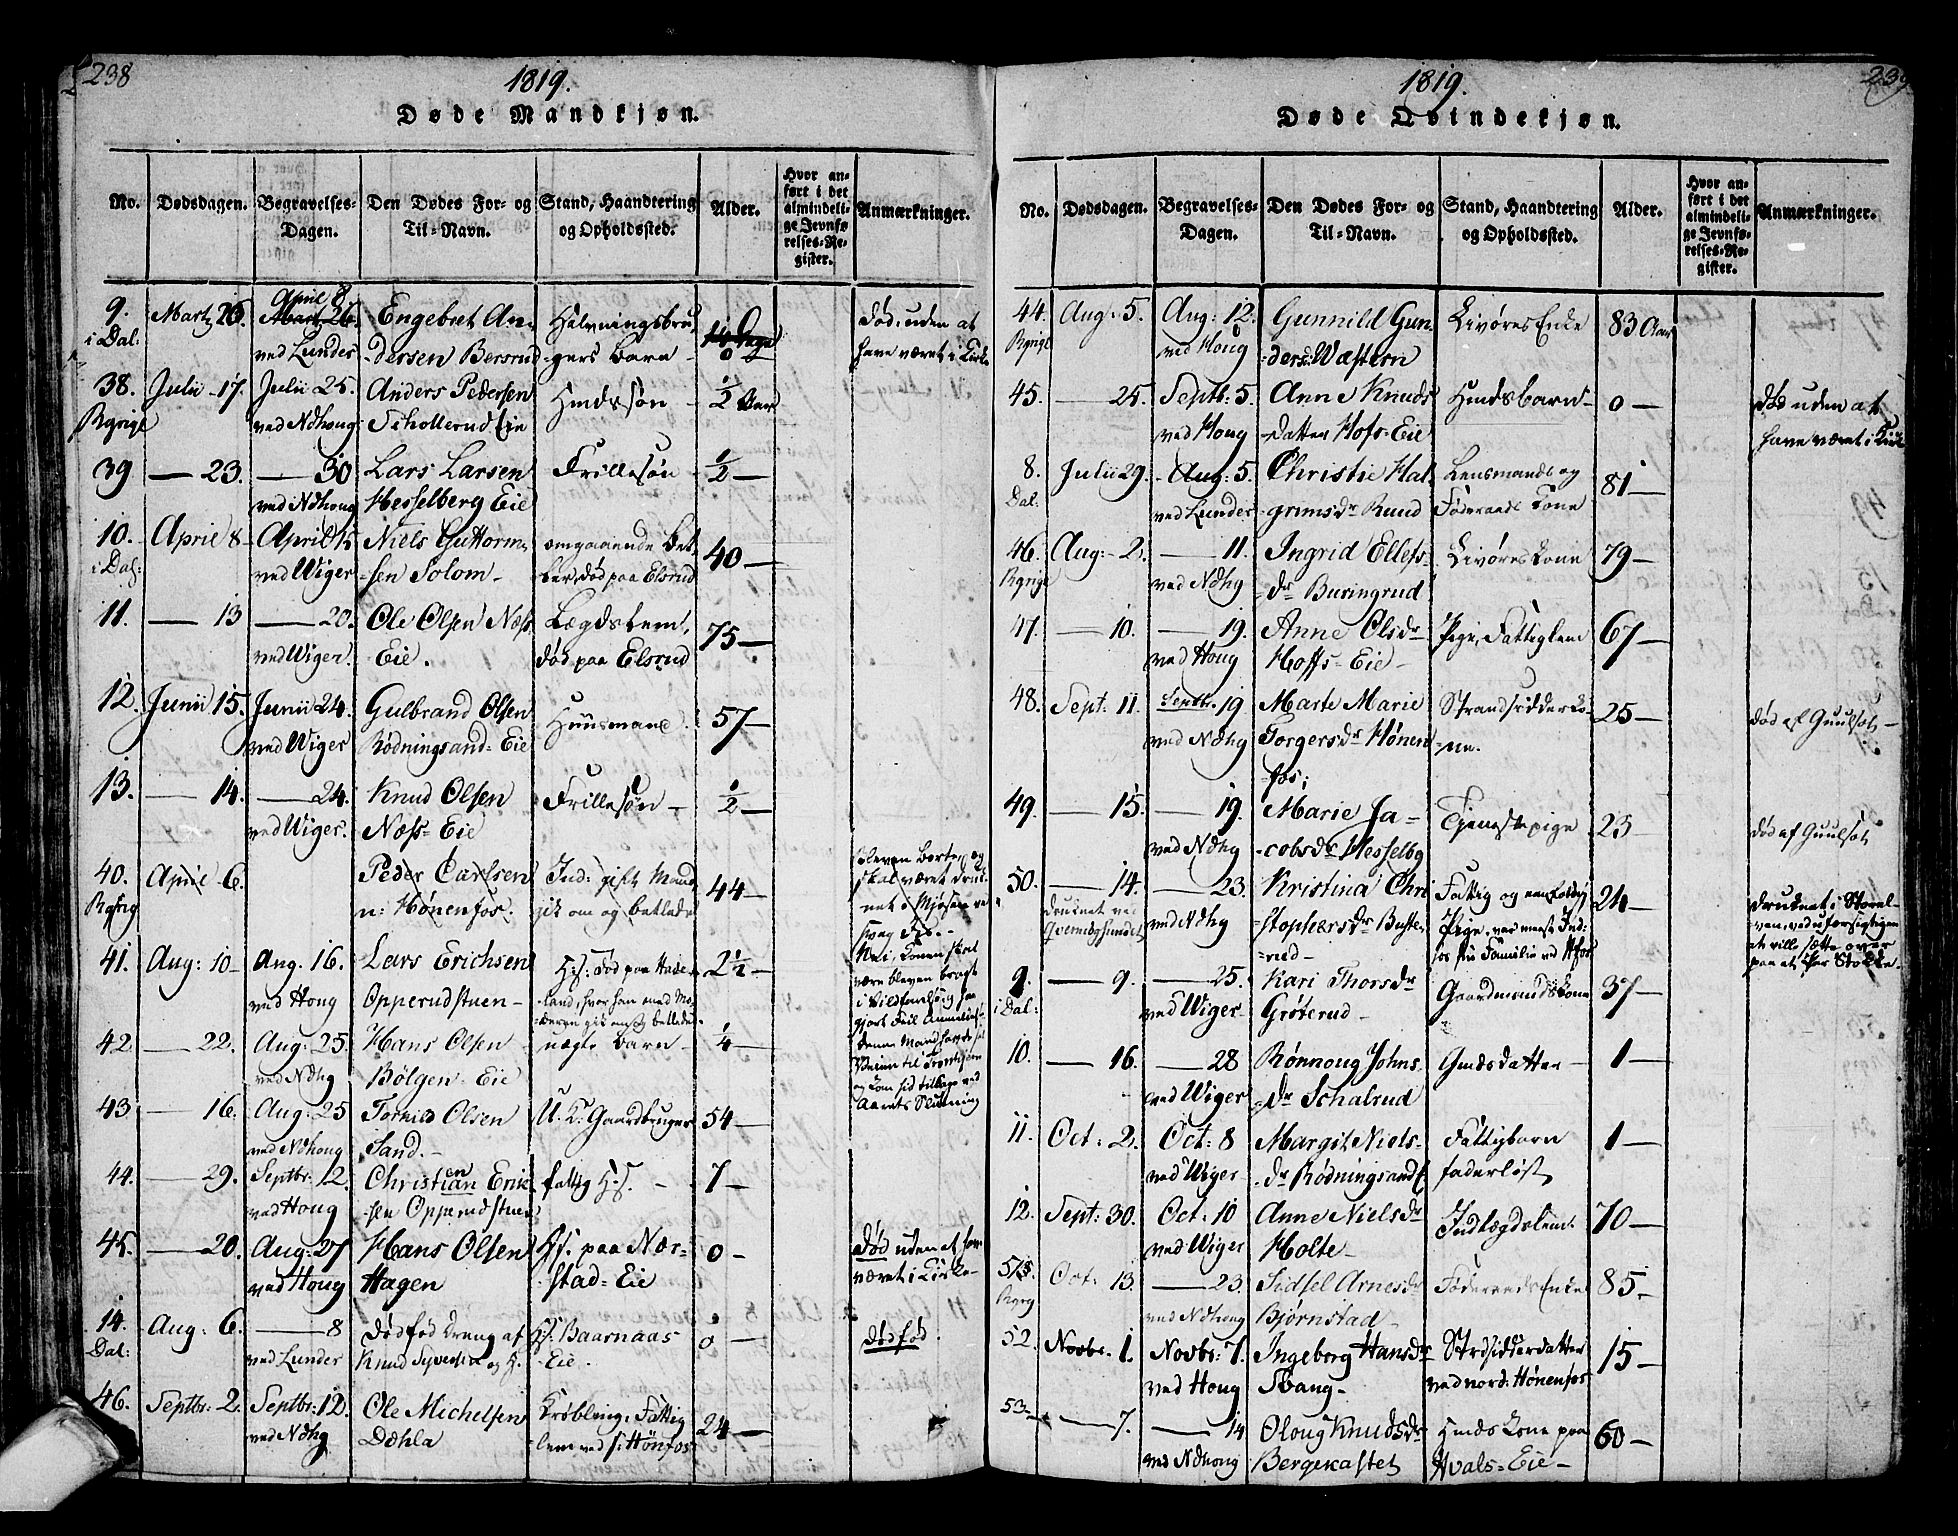 238
1819.
Døde Mandkjøn.
No.
Dødsdagen.
Begravelses-
Dagen.
Den Dødes For- og
Til-Navn.
Stand, Haandtering
og Opholdssted.
Alder.
Hvor an-
ført i det
almindeli-
ge Jevnfø-
relses-Re-
gister.
Anmærkninger.
9.
i Dal:
Martz 26.
April 8.
Mart 26.
ved Lunder
Engebret An-
dersen Bersrud
Halvningsbru-
gers barn
14 Dage
0
død: uden at
have været i Kirke
38.
Rgrige
Julii 17.
Julii 25.
ved Ndhoug
Anders Pedersen
Schollerud Eie
Hmdssøn
1/2 Aar
39
— 23.
— 30
ved Ndhoug
Lars Larsen
Hesselberg Eie
Frillesøn
1/2 —
10.
i Dal:
April 8
April 15
ved Wiger
Niels Guttorm-
sen Solom
omgaaende Bet-
ler, død paa Elsrud
40 —
11.
— 13
— 20.
ved Wiger.
Ole Olsen Næss
Eie.
Lægdslem,
død paa Elsrud
75 —
12.
Junii 15.
Junii 24.
ved Wiger
Gulbrand Olsen
Rødningsand-Eie
Huusmand
57 —
13.
— 14.
— 24.
ved Wiger.
Knud Olsen
Næss-Eie
Frillesøn
1/2 —
40.
Rgrig
April 6.
Peder Carlsen
n: Hønenfos.
Ind: gift Mand
gik om og betlede
44 —
bleven borte, og
skal været druk-
net i Mjøsen ve
41.
Aug: 10
Aug. 16.
ved Houg
Lars Erichsen
Opperudstuen
H:s: død paa Hade-
land, hvor han med Mo-
deren gik omk betlede
2 1/2 —
42
— 22.
Aug: 25.
ved Ndhg
Hans Olsen
Bølgen-Eie
uægte barn
1/4 —
43
— 16.
Aug: 25
ved Ndhoug
Tornild Olsen
Sand.
U. K. Gaardbruger
54 —
44.
— 29.
Septbr: 12.
ved Houg
Christian Erik-
sen Opperudstuen
fattig H.s.
7 —
45.
— 20.
Aug: 27
ved Houg
Hans Olsen
Hagen
Hs. paa Nær-
stad-Eie
0 —
Død uden at hav
været i Kirke
14.
Dal:
Aug: 6.
— 8
ved Lunder
dødfød Dreng af
Knud Syversen og H.
H: Baarnaas
Eie.
0 —
dødfød.
46.
Septbr: 2.
Septbr: 12.
ved Ndhg
Ole Michelsen
Dæhla
Krøbling; Fattig
lem ved s: Hønfos
24 —
239
1819.
Døde Qvindekjøn.
No.
Dødsdagen.
Begravelses-
Dagen.
Den Dødes For- og
Til-Navn.
Stand, Haandtering
og Opholdssted.
Alder.
Hvor an-
ført i det
almindeli-
ge Jevnfø-
relses-Re-
gister.
Anmærkninger.
44.
Rgrige
Aug: 5.
Aug: 12.
ved Houg
Gunnild Gun-
dersd Wæstern
Livøres Enke
83 Aar
45.
— 25.
Septb: 5.
ved Houg
Anne Knuds
Datter Hofs-Eie
Hmdsbarn
0 —
død uden at
have været i Kirke
8.
Dal.
Julii 29.
Aug: 5.
ved Lunder
Christie Hal-
grimsdr Ruud
Lensmands og
Føderaads Kone
81 —
46.
Rgrige
Aug: 2.
— 11.
ved Ndhg
Ingrid Ellefs
dr Buringrud
Livøres Kone
79 —
47.
— 10.
— 19.
ved Houg
Anne Olsdr
Hoffs-Eie
Pige, Fattiglem
67 —
48.
Sept: 11.
Septbr. 19
ved Ndhg
Marte Marie
Torgersdr Hønen
fos;
Strandsidderko-
ne.
25 —
død af Guulsot
49.
— 15.
— 19.
ved Ndhg
Marie Ja-
cobsdr Hesselbg
Tjenestepige
23
død af Guulsot
50.
— 14.
druknet ved
Qvernbgsundet
— 23.
ved Ndhg
Kristina Chri
stophersdr Buste-
rud
24 —
druknet i Storel-
ven, ved uforsigtigen
at ville sætte over
paa et Par Stokke.
9.
i Dal:
— 9.
— 25.
ved Wiger
Kari Thorsdr
Grøterud
Gaardmandskone
37 —
10.
— 16.
— 28
ved Wiger
Rønnoug Johns
dr Schalrud
Gmdsdatter
1 —
11.
Oct: 2.
Oct: 8
ved Wiger
Margit Niels-
dr Rødningsand E
Fattigbarn
faderløst
1 —
12.
Sept: 30.
Oct: 10
ved Wiger
Anne Nielsdr
Holte
Indlægdslem.
70 —
51.
Rgrg
Oct: 13.
— 23.
ved Ndhoug
Sidsel Arnesdr
Bjørnstad
Føderaads Enke
85 —
52.
Novbr. 1.
Novbr: 7.
ved Houg
Ingeborg Hansdr
Svang
Strdsidderdatter
ved nord: Hønenfos
15 —
53
— 7.
— 14
ved Ndhoug
Oloug Knudsdr
Bergekastet
Hmds Kone paa
Hvals-Eie
60 —